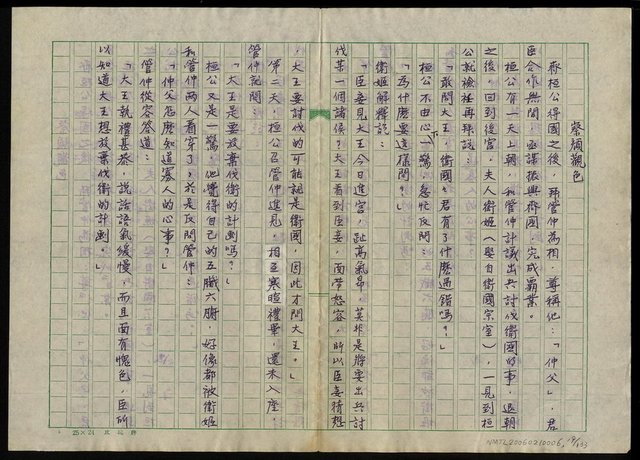 察顏觀色
齊桓公得國之後，拜管仲為相，尊稱他：「仲父」，君
臣合作無間，亟謀振興齊國，完成霸業。
桓公有一天上朝，和管仲計議出兵討伐衛國的事，退朝
之後，回到後宮，夫人衛姬（娶自衛國宗室），一見到桓
公就歛衽再拜說：
「敢問大王，衛國之君有了什麼過錯嗎？」
桓公不由心一驚，急忙反問：
「為什麼要這樣問？」
衛姬解釋說：
「臣妾見大王今日進宮，趾高氣昂，莫非是將要出兵討
伐某一個諸侯？大王看到臣妾，面帶怒容，所以臣妾猜想
，大王要討伐的可能就是衛國，因此才問大王。」
第二天，桓公召管仲進見，相互寒暄禮畢，還未入座，
管仲就問：
「大王是要放棄伐衛的計劃嗎？」
桓公又是一驚，他覺得自己的五臟六腑，好像都被衛姬
和管仲兩人看穿了，於是反問管仲：
「仲父怎麼知道寡人的心事？」
管仲從容答道：
「大王執禮甚恭，說話語氣緩慢，而且面有愧色，臣所
以知道大王想放棄伐衛的計劃。」
25×24
NMTL20060210006, 19/103